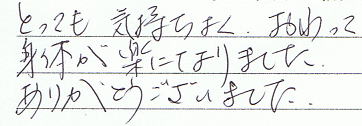 とっても 気持ちよく、おわって
身体が楽になりました。
ありがとうございました。